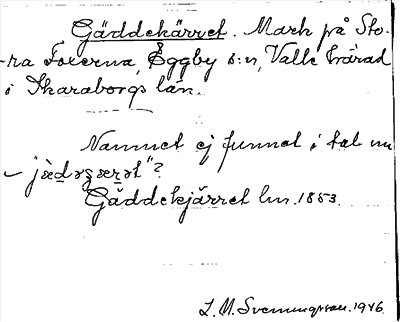 Gäddekärret. Mark på Sto-
ra Foxerna, Eggby s:n, Valle härad
i Skaraborgs län.
Namnet ej funnet i tal nu
"jædəɕærət"?
Gäddekjärret lm. 1853.
L. M. Svenungsson. 1946.